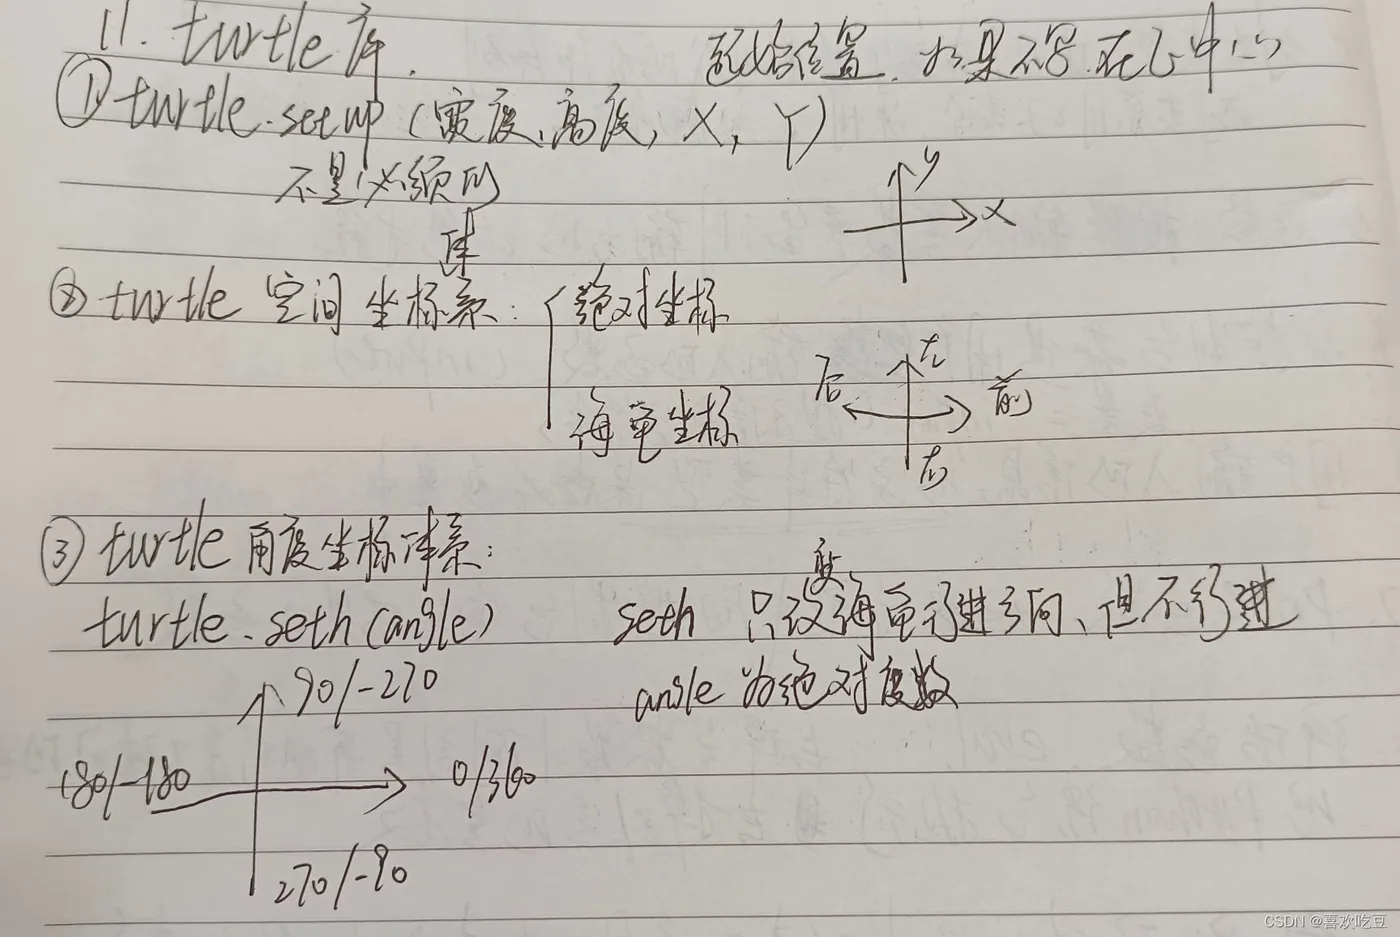 11. turtle库.
起始位置. 如果不写.在正中心
① turtle.setup (宽度、高度, X, Y)
不是必须的
y
x
体
② turtle 空间 坐标系: 绝对坐标
左
后
前
海龟坐标
右
③ turtle 角度坐标体系:
变
turtle.seth(angle) seth 只改海龟行进方向、但不行进
90/-270
angle 为绝对度数
180/-180 0/360
270/-90
CSDN @喜欢吃豆